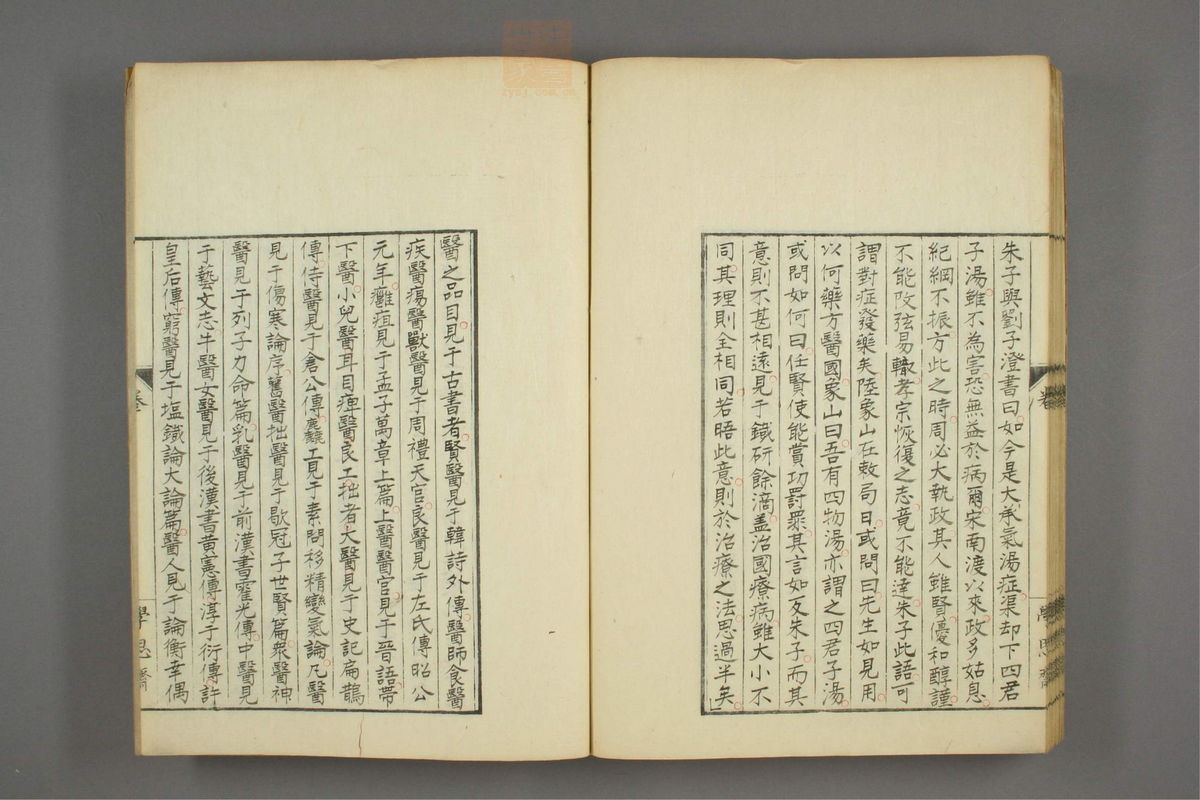 朱子與劉子澄書曰如今是大承氣湯症渠却下四君
子湯雖不為害恐無益於病爾宋南渡以來政多姑息
紀綱不振方此之時周必大執政其人雖賢優和醇謹
不能改弦易轍孝宗恢復之志竟不能達朱子此語可
謂對症發藥矣陸象山在敕局日或問曰先生如見用
以何藥方醫國象山曰吾有四物湯亦謂之四君子湯
或問如何曰任賢使能賞功罰罪其言如反朱子而其
意則不甚相遠見于鐵研餘滴蓋治國療病雖大小不
同其理則全相同若晤此意則於治療之法思過半矣
醫之品目見于古書者賢醫見于韓詩外傳醫師食醫
疾醫瘍醫獸醫見于周禮天官良醫見于左氏傳昭公
元年癰疽見于孟子萬章上篇上醫醫官見于晉語帶
下醫小兒醫耳目痺醫良工拙者大醫見于史記扁鵲
傳侍醫見于倉公傳麤工見于素問移精變氣論凡醫
見于傷寒論序舊醫拙醫見于歇冠子世賢篇衆醫神
醫見于列子力命篇乳醫見于前漢書霍光傳中醫見
于藝文志牛醫女醫見于後漢書黃憲傳淳于衍傳許
皇后傳窮醫見于塩鐵論大論篇醫人見于論衡幸偶
學思齋